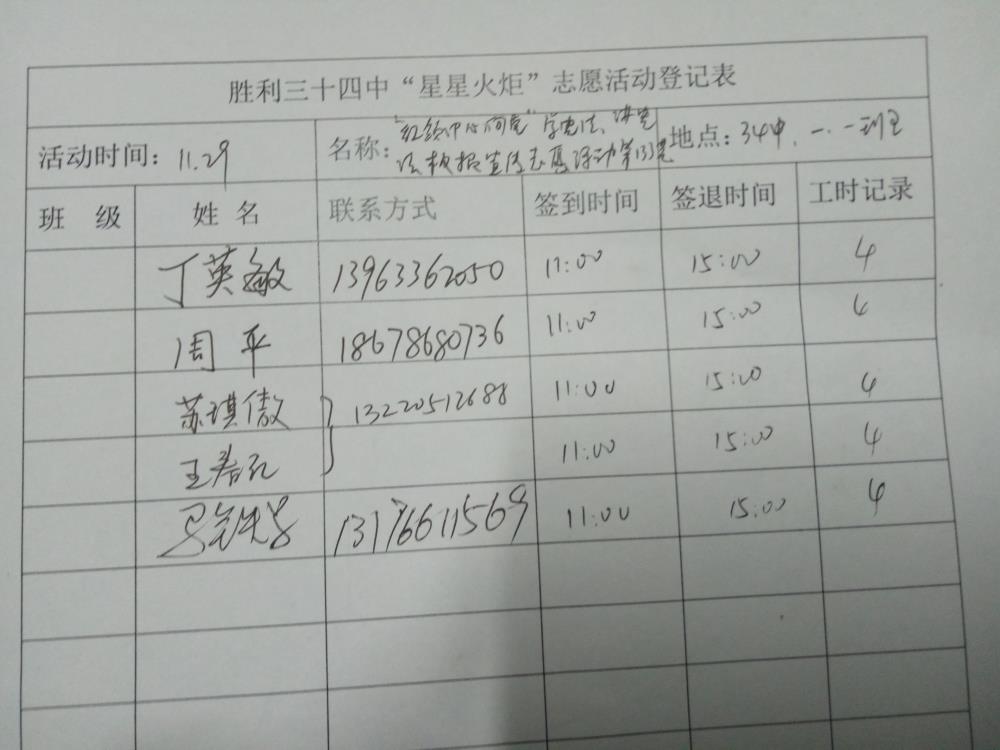 胜利三十四中“星星火炬”志愿活动登记表
活动时间：11.29 名称：“红领巾心向党”学宪法、讲宪法板报宣传志愿活动第133 地点：34中
班 级 姓 名 联系方式 签到时间 签退时间 工时记录
丁英敏 13963362050 11:00 15:00 4
周平 18678680736 11:00 15:00 4
苏琪傲 13220512688 11:00 15:00 4
王春孔 11:00 15:00 4
13176611569 11:00 15:00 4